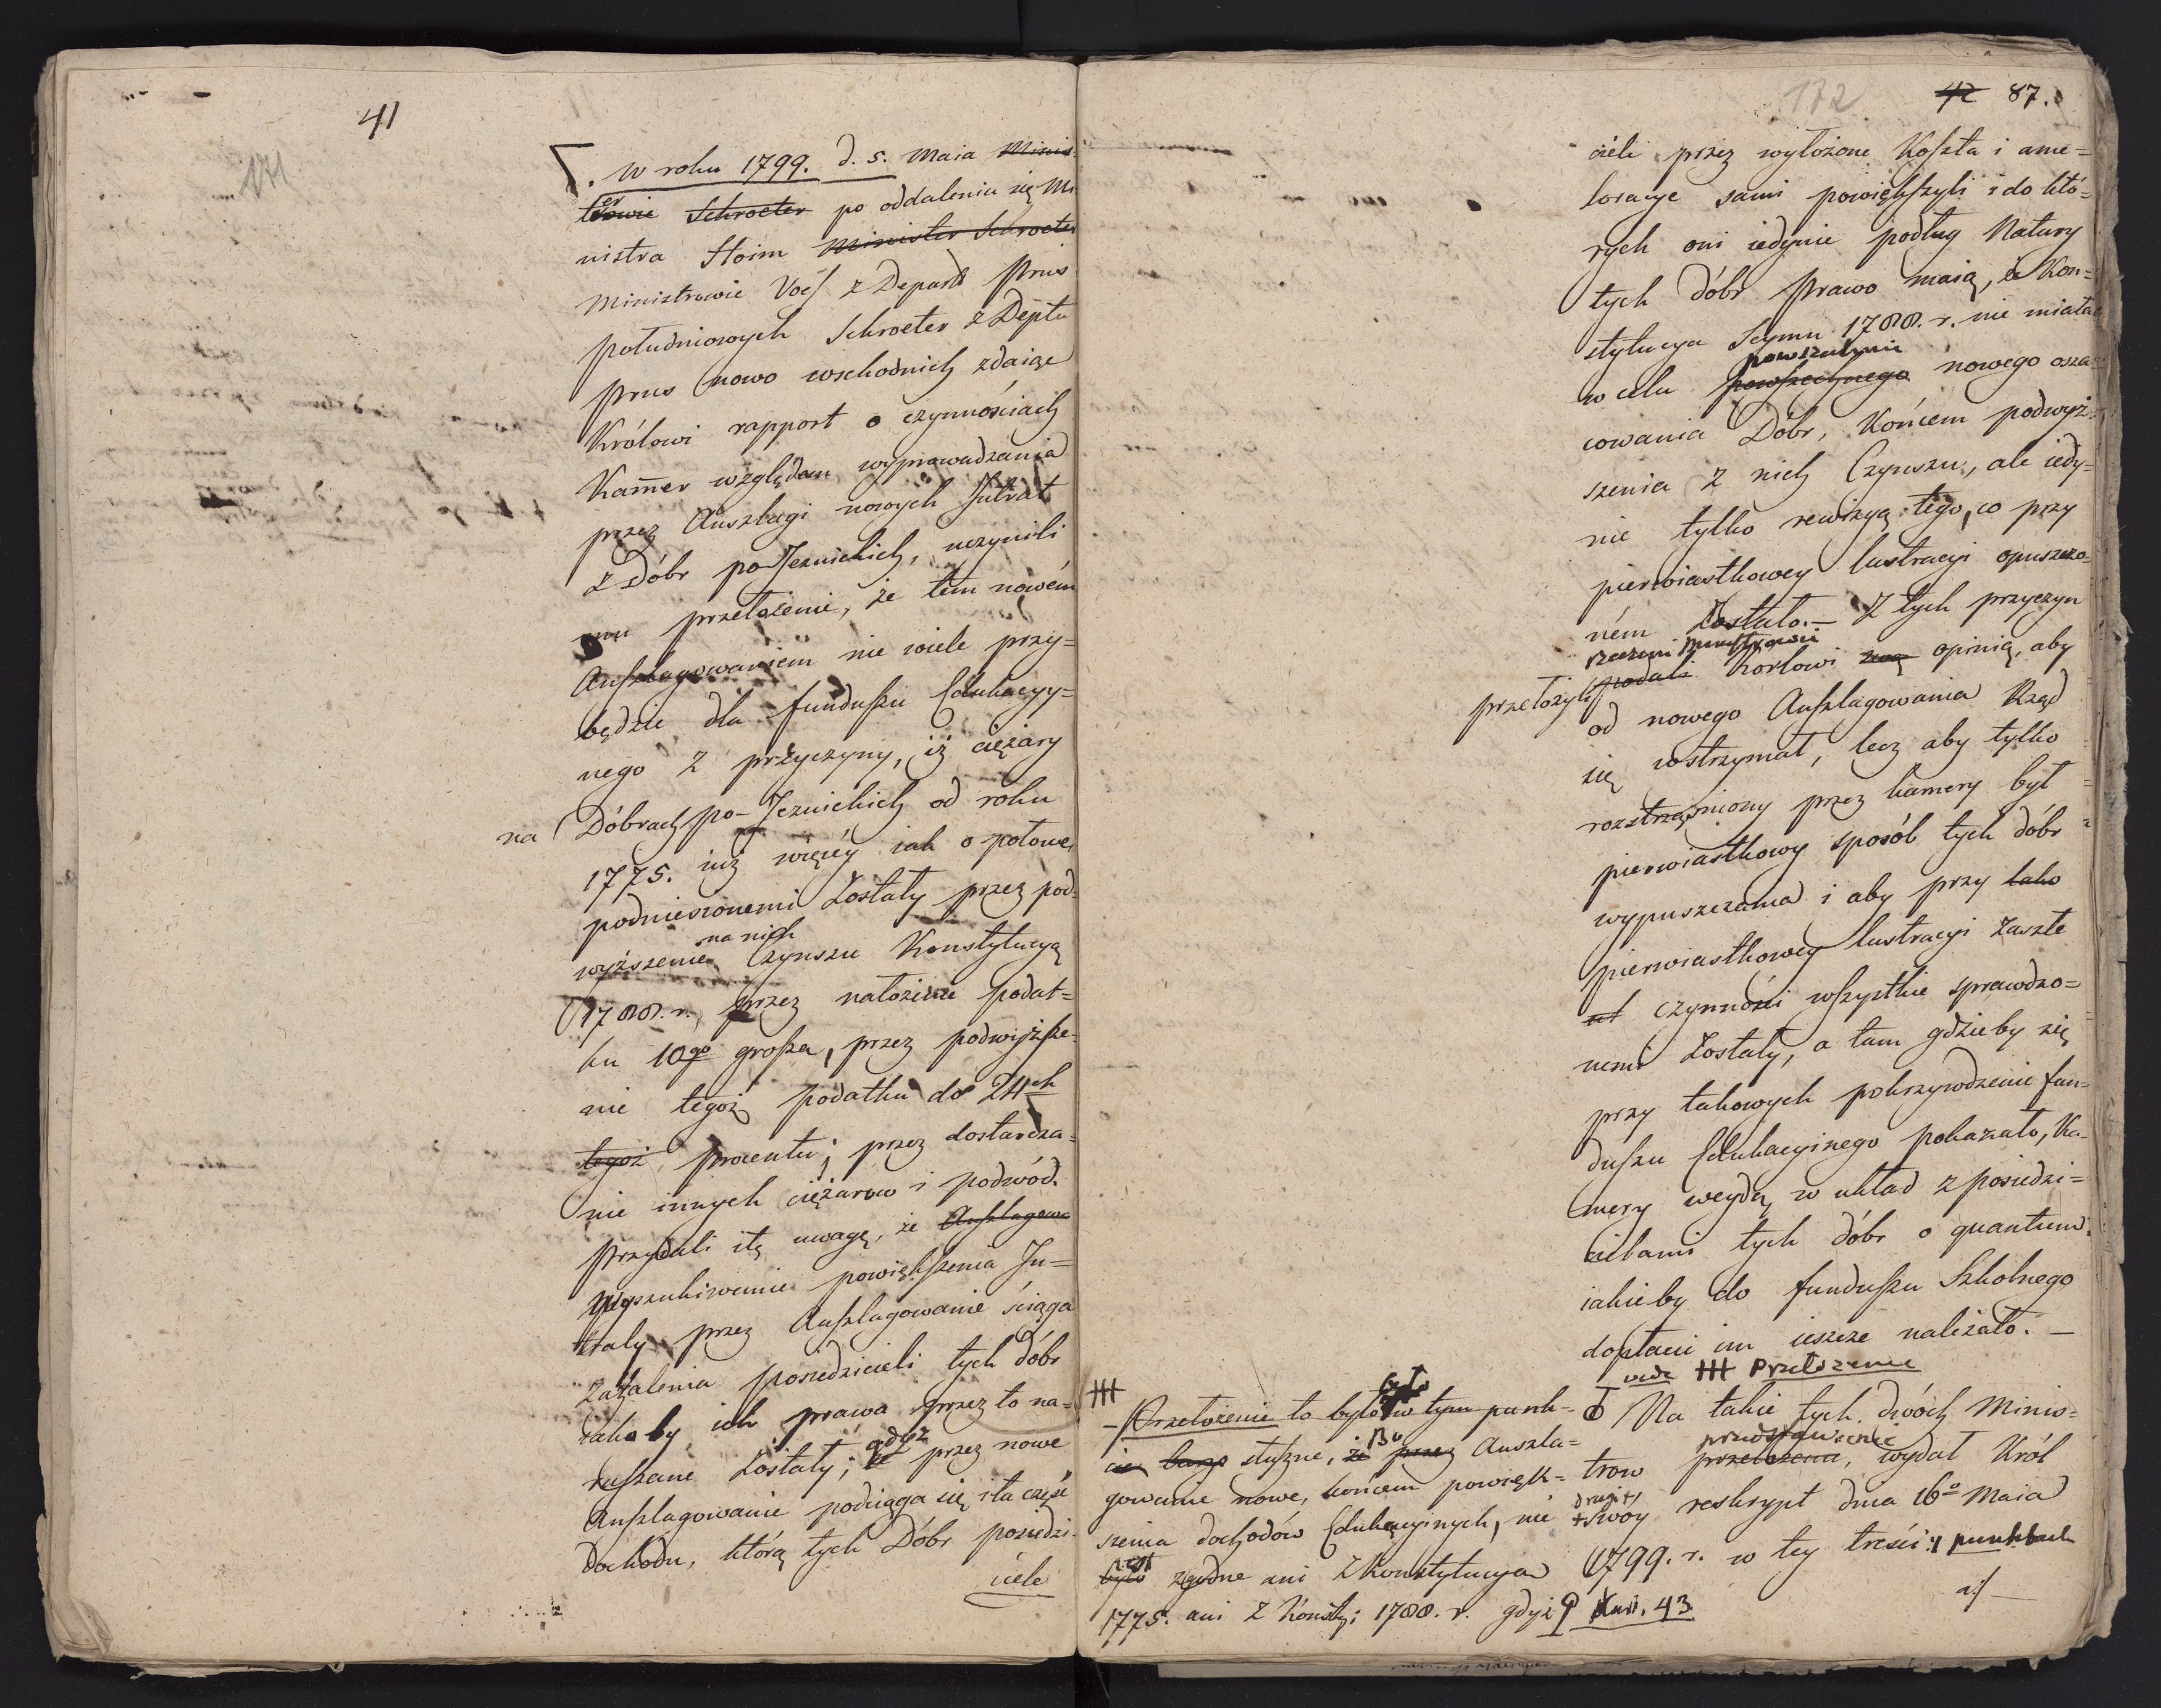 41
171
W roku 1799. d. 5. Maia Minis-
trowie Schroeter po oddaleniu się Mi
nistra Hoim Minister Schroeter
Ministrowie Voës z Depart Prus
południowych Schroeter z Deptu
Prus nowo wschodnich zdaiąc
Królowi rapport o czynnościach
Kamer względem wyprowadzania
przez Auszlagi nowych Intrat
z Dóbr po Jezuickich, uczynili
mu przełożenie, że tem nowém
Auszlagowaniem nie wiele przy=
będzie dla funduszu Edukacyy=
nego z przyczyny, iż ciężary
na Dóbrach po-Jezuickich od roku
1775. iuż więcéy iak o połowę
podniesionemi zostały przez pod-
wyższenie na nich Czynszu Konstytucyą
1788. r. przez nałożenie podat=
ku 10go grosza, przez podwyższe-
nie tegoż podatku do 24ch
tegoż procentu; przez dostarcza=
nie innych ciężarow i podwód.
Przydali i tę uwagę, że Auszlagowa
Wyszukiwanie powiększenia In=
traty przez Auszlagowanie ściąga
zażalenia posiedzicieli tych dóbr
iakoby ich prawa przez to na=
ruszane zostały; że gdyż przez nowe
Auszlagowanie podciąga się i ta część
dochodu, którą tych Dóbr posiedzi-
ciele
172
42 87.
ciele przez wyłożone Koszta i ame=
loracye sami powiększyli i do któ=
rych oni iedynie podług Natury
tych dóbr Prawo maią, że Kon=
stytucya Seymu 1788. r. nie miała
w celu powszechnego powszechnie nowego osza-
cowania Dóbr, Końcem podwyż-
szenia z nich Czynszu, ale iedy=
nie tylko rewizyą tego, co przy
pierwiastkowey lustracyi opuszczo=
ném zostało. — Z tych przyczyn
rzeczeni Ministrowie
przełożyli podali Królowi swą opinią, aby
od nowego Auszlagowania Rząd
się wstrzymał, lecz aby tylko
roztrząśniony przez kamery był
pierwiastkowy sposób tych dóbr
wypuszczania i aby przy tako
pierwiastkowey lustracyi zaszłe
czynności wszystkie sprawdzo=
nemi zostały, a tam gdzieby się
przy takowych pokrzywdzenie fun-
duszu Edukacyinego pokazało, Ka-
mery weydą w układ z posiedzi=
cielami tych dóbr o quantum
iakieby do funduszu Szkolnego
dopłacić im ieszcze należało. —
vide ### Przełożenie
Na takie tych dwóch Minis=
trow przełożenia przedstawienie, wydał Król
drugi swoy reskrypt dnia 16o Maia
1799. r. w tey treści: punktach
a/
### — Przełożenie to było w tym punk-
cie barzo słuszne, że przez Bo Auszla=
gowanie nowe, końcem powięk=
szenia dochodów Edukacyinych, nie
było iest zgodne ani z Konstytucya
1775. ani z Konsty: 1788. r. gdyż Kar. 43